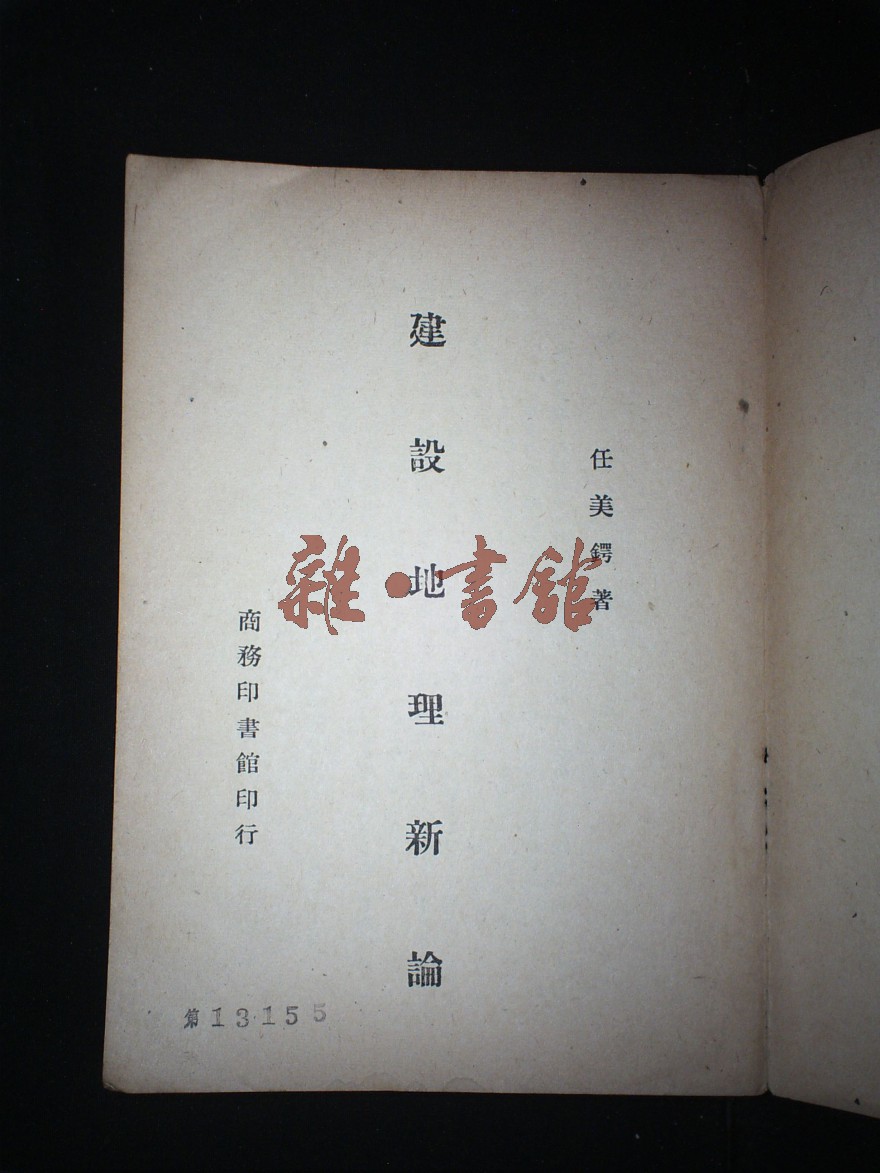 任美鍔著
建設地理新論
商務印書館印行
第13155
雜·書館